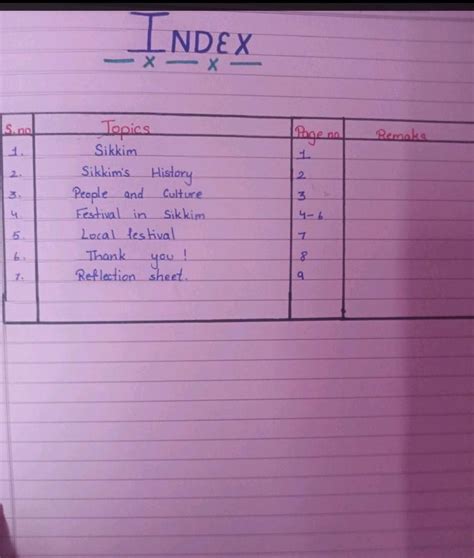 INDEX
S.no Topics Page no. Remaks
1. Sikkim 1
2. Sikkim's History 2
3. People and Culture 3
4. Festival in Sikkim 4-6
5. Local festival 7
6. Thank you! 8
7. Reflection sheet. 9